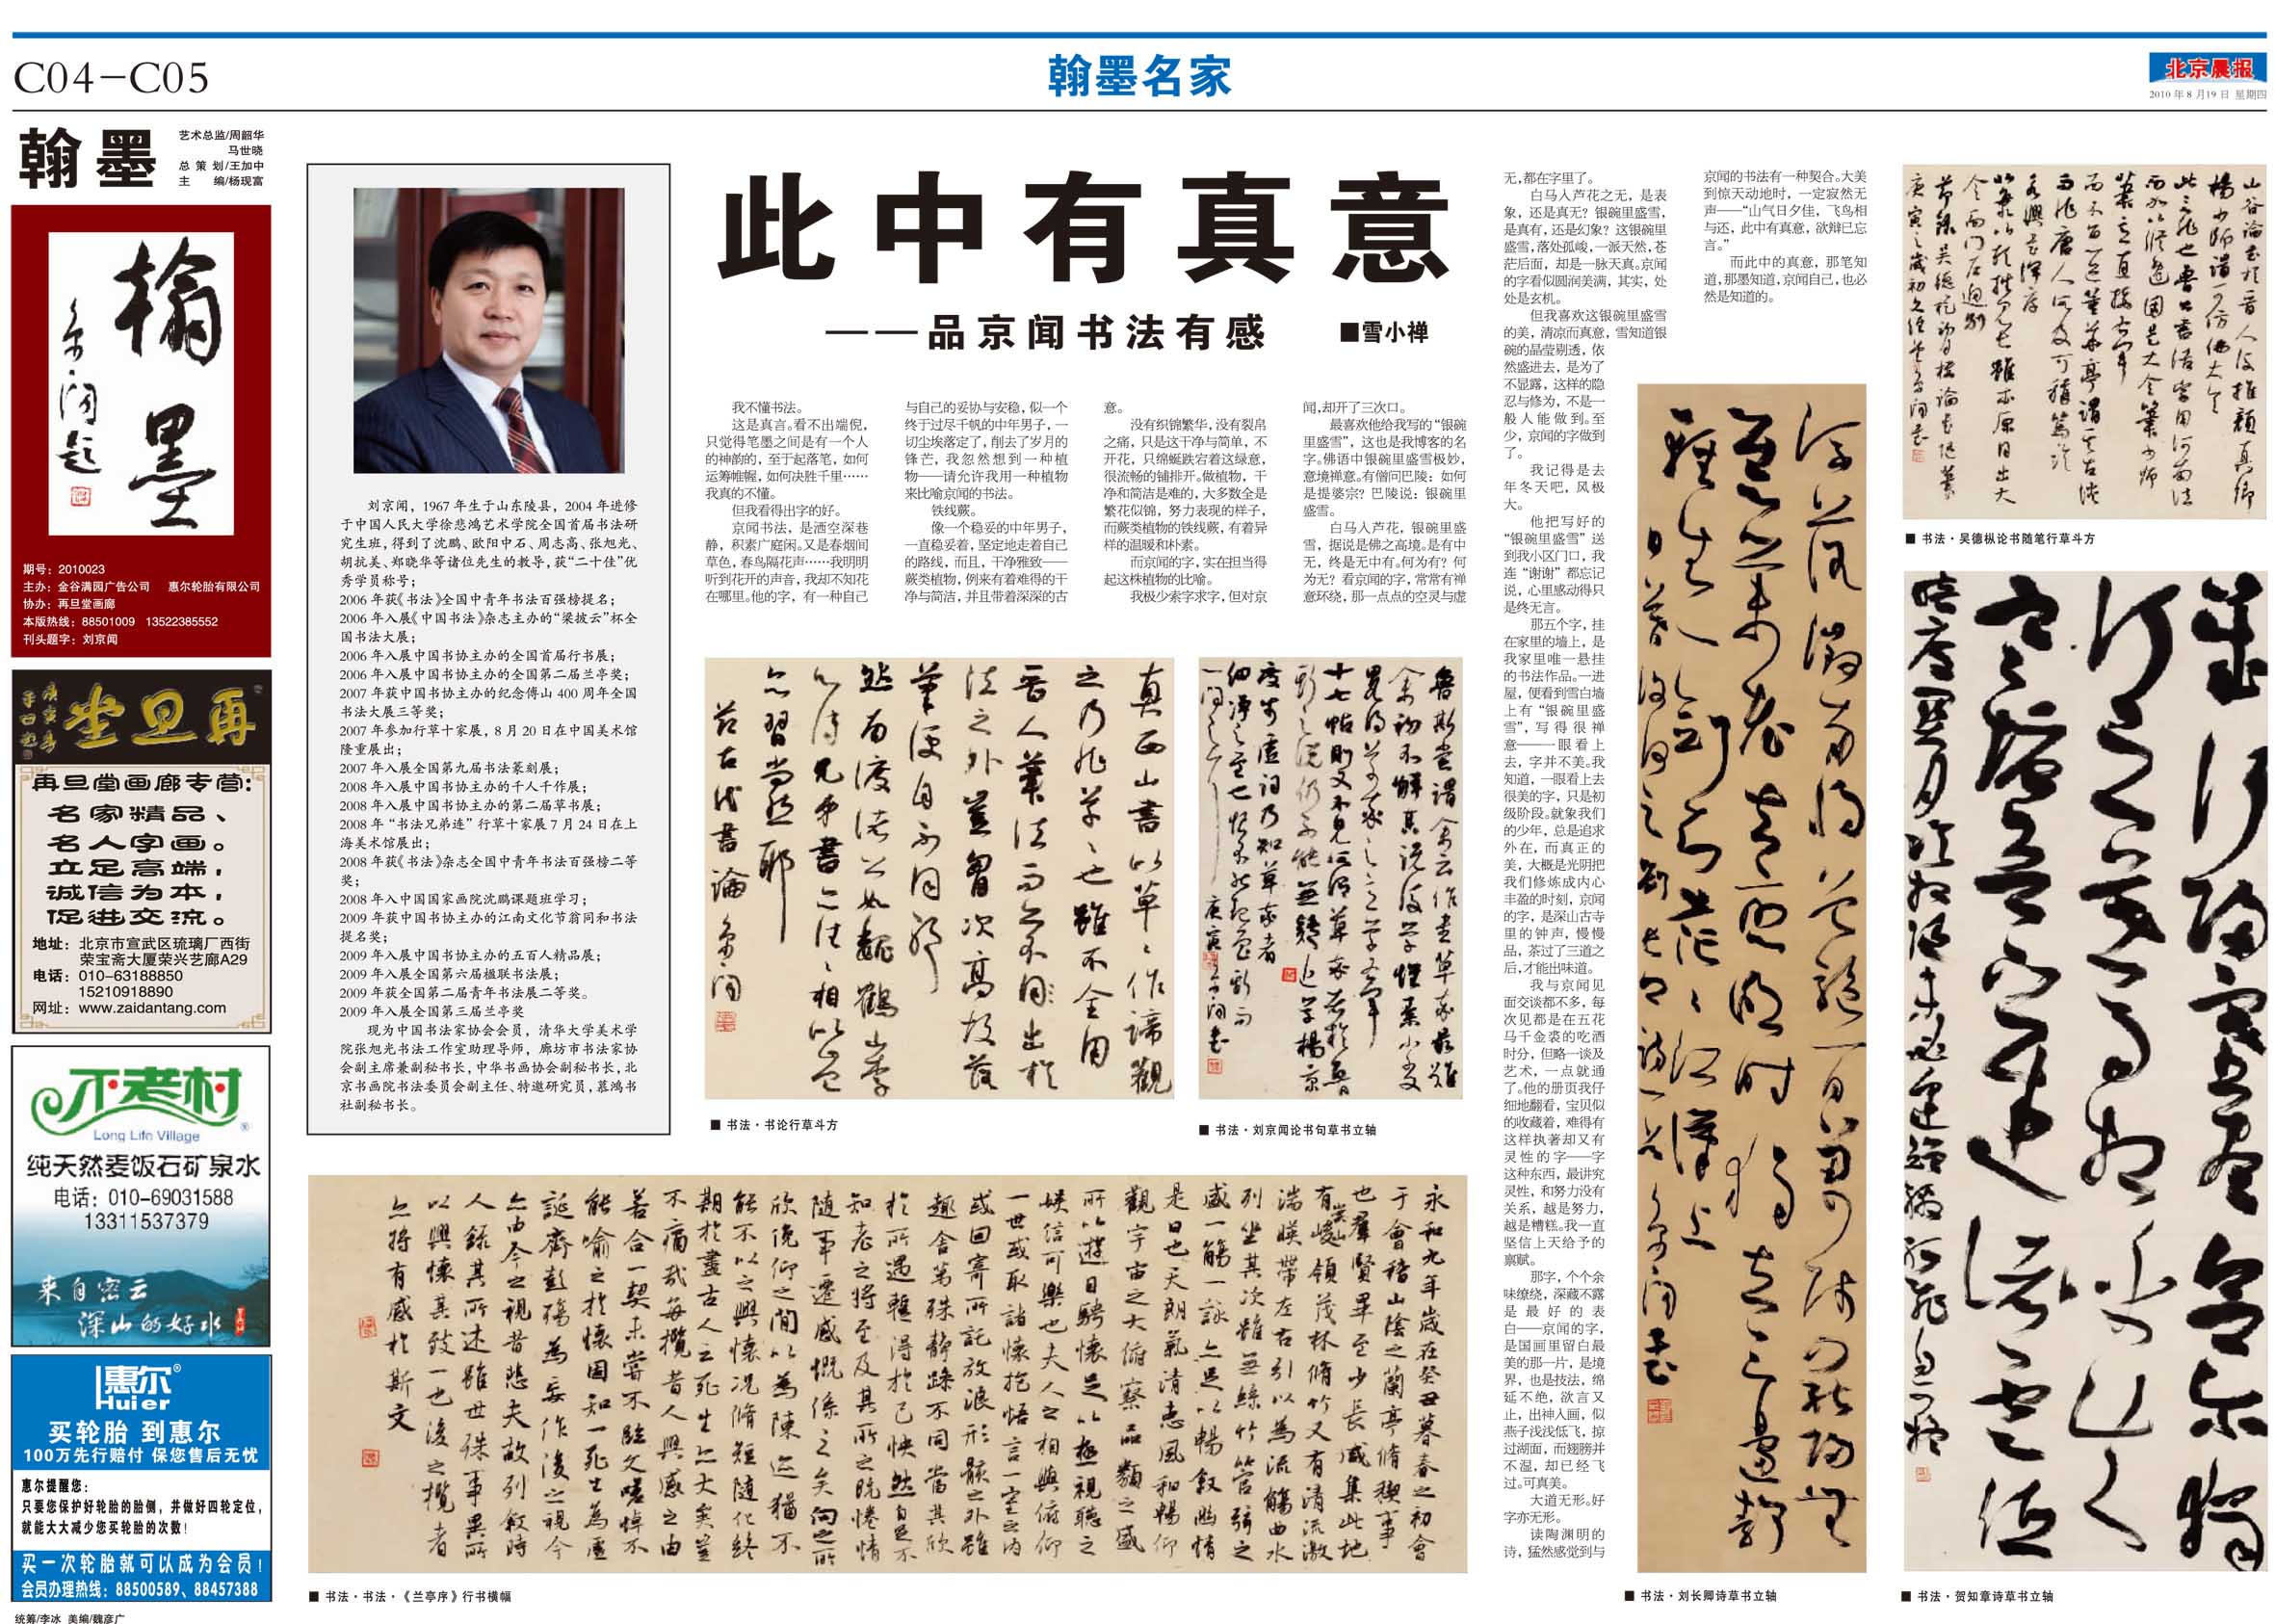 C04-C05
翰墨名家
北京晨报
2010年8月19日 星期四
翰墨
艺术总监/周韶华
马世晓
总 策 划/王加中
主　　编/杨现富
翰墨
京闻题
期号：2010023
主办：金谷满园广告公司　惠尔轮胎有限公司
协办：再旦堂画廊
本版热线：88501009　13522385552
刊头题字：刘京闻
再旦堂
再旦堂画廊专营：
名家精品、
名人字画。
立足高端，
诚信为本，
促进交流。
地址：北京市宣武区琉璃厂西街
荣宝斋大厦荣兴艺廊A29
电话：010-63188850
15210918890
网址：www.zaidantang.com
不老村
Long Life Village
纯天然麦饭石矿泉水
电话：010-69031588
13311537379
来自密云
深山的好水
惠尔
Huier
买轮胎 到惠尔
100万先行赔付 保您售后无忧
惠尔提醒您：
只要您保护好轮胎的胎侧，并做好四轮定位，
就能大大减少您买轮胎的次数！
买一次轮胎就可以成为会员！
会员办理热线：88500589、88457388
统筹/李冰 美编/魏彦广
刘京闻，1967年生于山东陵县，2004年进修
于中国人民大学徐悲鸿艺术学院全国首届书法研
究生班，得到了沈鹏、欧阳中石、周志高、张旭光、
胡抗美、郑晓华等诸位先生的教导，获“二十佳”优
秀学员称号；
2006年获《书法》全国中青年书法百强榜提名；
2006年入展《中国书法》杂志主办的“梁披云”杯全
国书法大展；
2006年入展中国书协主办的全国首届行书展；
2006年入展中国书协主办的全国第二届兰亭奖；
2007年获中国书协主办的纪念傅山400周年全国
书法大展三等奖；
2007年参加行草十家展，8月20日在中国美术馆
隆重展出；
2007年入展全国第九届书法篆刻展；
2008年入展中国书协主办的千人千作展；
2008年入展中国书协主办的第二届草书展；
2008年“书法兄弟连”行草十家展7月24日在上
海美术馆展出；
2008年获《书法》杂志全国中青年书法百强榜二等
奖；
2008年入中国国家画院沈鹏课题班学习；
2009年获中国书协主办的江南文化节翁同和书法
提名奖；
2009年入展中国书协主办的五百人精品展；
2009年入展全国第六届楹联书法展；
2009年获全国第二届青年书法展二等奖。
2009年入展全国第三届兰亭奖
现为中国书法家协会会员，清华大学美术学
院张旭光书法工作室助理导师，廊坊市书法家协
会副主席兼副秘书长，中华书画协会副秘书长，北
京书画院书法委员会副主任、特邀研究员，慕鸿书
社副秘书长。
此中有真意
——品京闻书法有感
■雪小禅
我不懂书法。
这是真言。看不出端倪，
只觉得笔墨之间是有一个人
的神韵的，至于起落笔，如何
运筹帷幄，如何决胜千里……
我真的不懂。
但我看得出字的好。
京闻书法，是洒空深巷
静，积素广庭闲。又是春烟间
草色，春鸟隔花声……我明明
听到花开的声音，我却不知花
在哪里。他的字，有一种自己
与自己的妥协与安稳，似一个
终于过尽千帆的中年男子，一
切尘埃落定了，削去了岁月的
锋芒，我忽然想到一种植
物——请允许我用一种植物
来比喻京闻的书法。
铁线蕨。
像一个稳妥的中年男子，
一直稳妥着，坚定地走着自己
的路线，而且，干净雅致——
蕨类植物，例来有着难得的干
净与简洁，并且带着深深的古
意。
没有织锦繁华，没有裂帛
之痛，只是这干净与简单，不
开花，只绵蜒跌宕着这绿意，
很流畅的铺排开。做植物，干
净和简洁是难的，大多数全是
繁花似锦，努力表现的样子，
而蕨类植物的铁线蕨，有着异
样的温暖和朴素。
而京闻的字，实在担当得
起这株植物的比喻。
我极少索字求字，但对京
闻，却开了三次口。
最喜欢他给我写的“银碗
里盛雪”，这也是我博客的名
字。佛语中银碗里盛雪极妙，
意境禅意。有僧问巴陵：如何
是提婆宗？巴陵说：银碗里
盛雪。
白马入芦花，银碗里盛
雪，据说是佛之高境。是有中
无，终是无中有。何为有？何
为无？看京闻的字，常常有禅
意环绕，那一点点的空灵与虚
无，都在字里了。
白马人芦花之无，是表
象，还是真无？银碗里盛雪，
是真有，还是幻象？这银碗里
盛雪，落处孤峻，一派天然，苍
茫后面，却是一脉天真。京闻
的字看似圆润美满，其实，处
处是玄机。
但我喜欢这银碗里盛雪
的美，清凉而真意，雪知道银
碗的晶莹剔透，依
然盛进去，是为了
不显露，这样的隐
忍与修为，不是一
般人能做到。至
少，京闻的字做到
了。
我记得是去
年冬天吧，风极
大。
他把写好的
“银碗里盛雪”送
到我小区门口，我
连“谢谢”都忘记
说，心里感动得只
是终无言。
那五个字，挂
在家里的墙上，是
我家里唯一悬挂
的书法作品。一进
屋，便看到雪白墙
上有“银碗里盛
雪”，写得很禅
意——一眼看上
去，字并不美。我
知道，一眼看上去
很美的字，只是初
级阶段。就象我们
的少年，总是追求
外在，而真正的
美，大概是光阴把
我们修炼成内心
丰盈的时刻，京闻
的字，是深山古寺
里的钟声，慢慢
品，茶过了三道之
后，才能出味道。
我与京闻见
面交谈都不多，每
次见都是在五花
马千金裘的吃酒
时分，但略一谈及
艺术，一点就通
了。他的册页我仔
细地翻看，宝贝似
的收藏着，难得有
这样执著却又有
灵性的字——字
这种东西，最讲究
灵性，和努力没有
关系，越是努力，
越是糟糕。我一直
坚信上天给予的
禀赋。
那字，个个余
味缭绕，深藏不露
是最好的表
白——京闻的字，
是国画里留白最
美的那一片，是境
界，也是技法，绵
延不绝，欲言又
止，出神入画，似
燕子浅浅低飞，掠
过湖面，而翅膀并
不湿，却已经飞
过。可真美。
大道无形。好
字亦无形。
读陶渊明的
诗，猛然感觉到与
京闻的书法有一种契合。大美
到惊天动地时，一定寂然无
声——“山气日夕佳，飞鸟相
与还，此中有真意，欲辩已忘
言。”
而此中的真意，那笔知
道，那墨知道，京闻自己，也必
然是知道的。
■ 书法·书论行草斗方
■ 书法·刘京闻论书句草书立轴
永和九年歲在癸丑暮春之初會
于會稽山陰之蘭亭脩稧事
也羣賢畢至少長咸集此地
有崇山峻領茂林脩竹又有清流激
湍暎帶左右引以為流觴曲水
列坐其次雖無絲竹管弦之
盛一觴一詠亦足以暢敘幽情
是日也天朗氣清惠風和暢仰
觀宇宙之大俯察品類之盛
所以遊目騁懷足以極視聽之
娛信可樂也夫人之相與俯仰
一世或取諸懷抱悟言一室之內
或因寄所託放浪形骸之外雖
趣舍萬殊靜躁不同當其欣
於所遇暫得於己快然自足不
知老之將至及其所之既惓情
隨事遷感慨係之矣向之所
欣俛仰之間以為陳迹猶不
能不以之興懷況脩短隨化終
期於盡古人云死生亦大矣豈
不痛哉每攬昔人興感之由
若合一契未嘗不臨文嗟悼不
能喻之於懷固知一死生為虛
誕齊彭殤為妄作後之視今
亦由今之視昔悲夫故列敘時
人錄其所述雖世殊事異所
以興懷其致一也後之攬者
亦將有感於斯文
■ 书法·书法·《兰亭序》行书横幅
■ 书法·刘长卿诗草书立轴
■ 书法·吴德枞论书随笔行草斗方
■ 书法·贺知章诗草书立轴